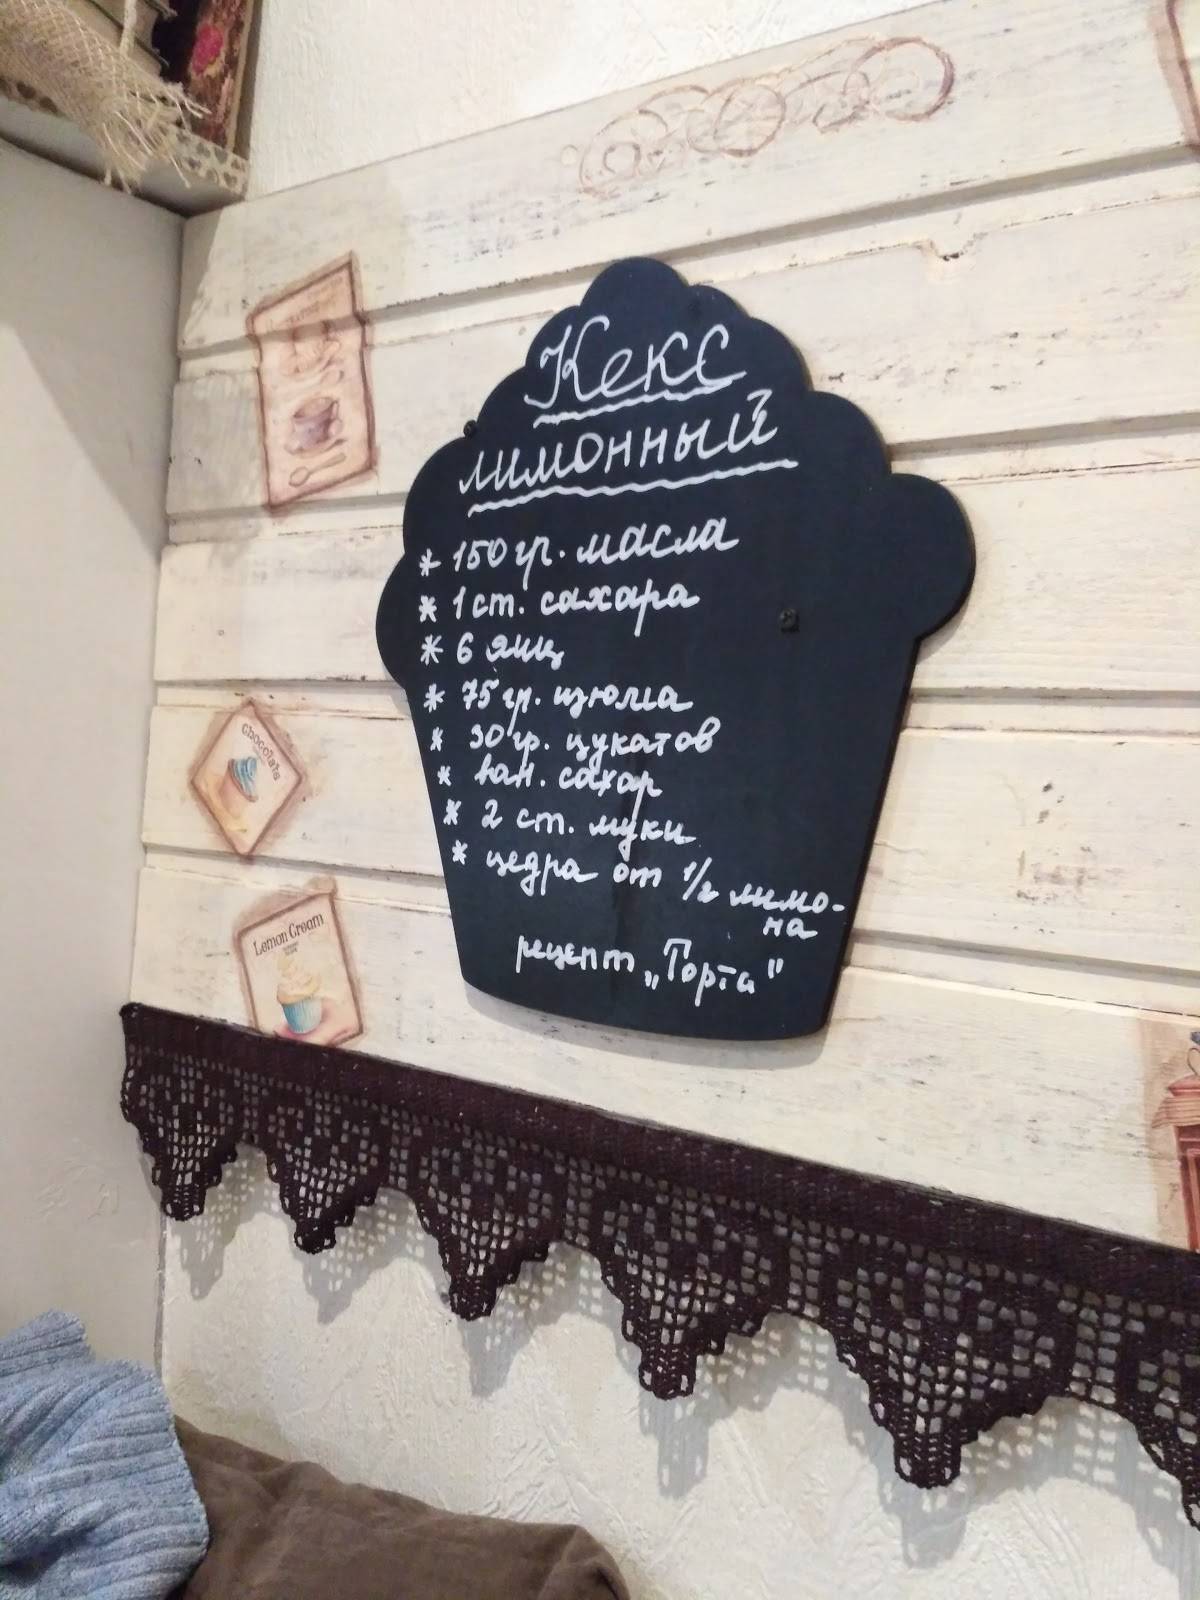 Кекс
лимонный
* 150 гр. масла
* 1 ст. сахара
* 6 яиц
* 75 гр. изюма
* 30 гр. цукатов
* ван. сахар
* 2 ст. муки
* цедра от 1/2 лимо-
на
рецепт „Торта"
Chocolate
Lemon Cream